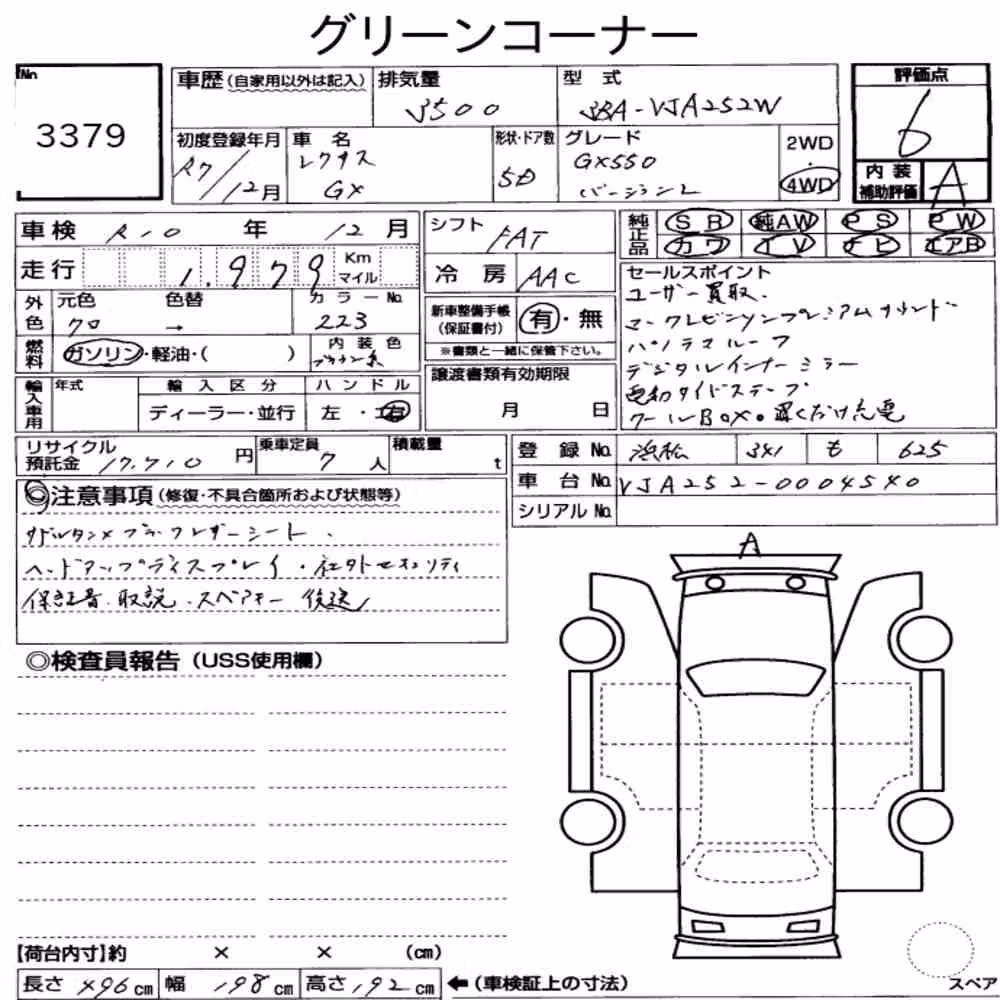 グリーンコーナー
No. 3379
車歴(自家用以外は記入) 排気量 3500 型式 3BA-VJA252W 評価点 6
初度登録年月 R7/12月 車名 レクサス GX 形状・ドア数 5D グレード GX550 バージョンL 2WD・4WD
内装補助評価 A
車検 R10年 12月 シフト FAT 純正品 SR 純AW PS PW
カワ TV ナビ エアB
走行 1,979 Km マイル 冷房 AAC
外色 元色 クロ 色替 → カラーNo. 223
新車整備手帳(保証書付) 有・無
※書類と一緒に保管下さい。
燃料 ガソリン・軽油・( ) 内装色 ブラウン系
輸入車用 年式 輸入区分 ディーラー・並行 ハンドル 左・右
譲渡書類有効期限 月 日
セールスポイント
ユーザー買取.
マークレビンソンプレミアムサウンド
パノラマルーフ
デジタルインナーミラー
電動サイドステップ
クールBOX。置くだけ充電
リサイクル預託金 17,710円 乗車定員 7人 積載量 t
登録No. 浜松 341 も 625
車台No. VJA252-0004540
シリアルNo.
◎注意事項(修復・不具合箇所および状態等)
サドルタン×ブラックレザーシート.
ヘッドアップディスプレイ・社外セキュリティ
保証書.取説.スペアキー 後送
A
◎検査員報告(USS使用欄)
【荷台内寸】約 × × (cm)
長さ 496cm 幅 198cm 高さ 192cm ←(車検証上の寸法)
スペア